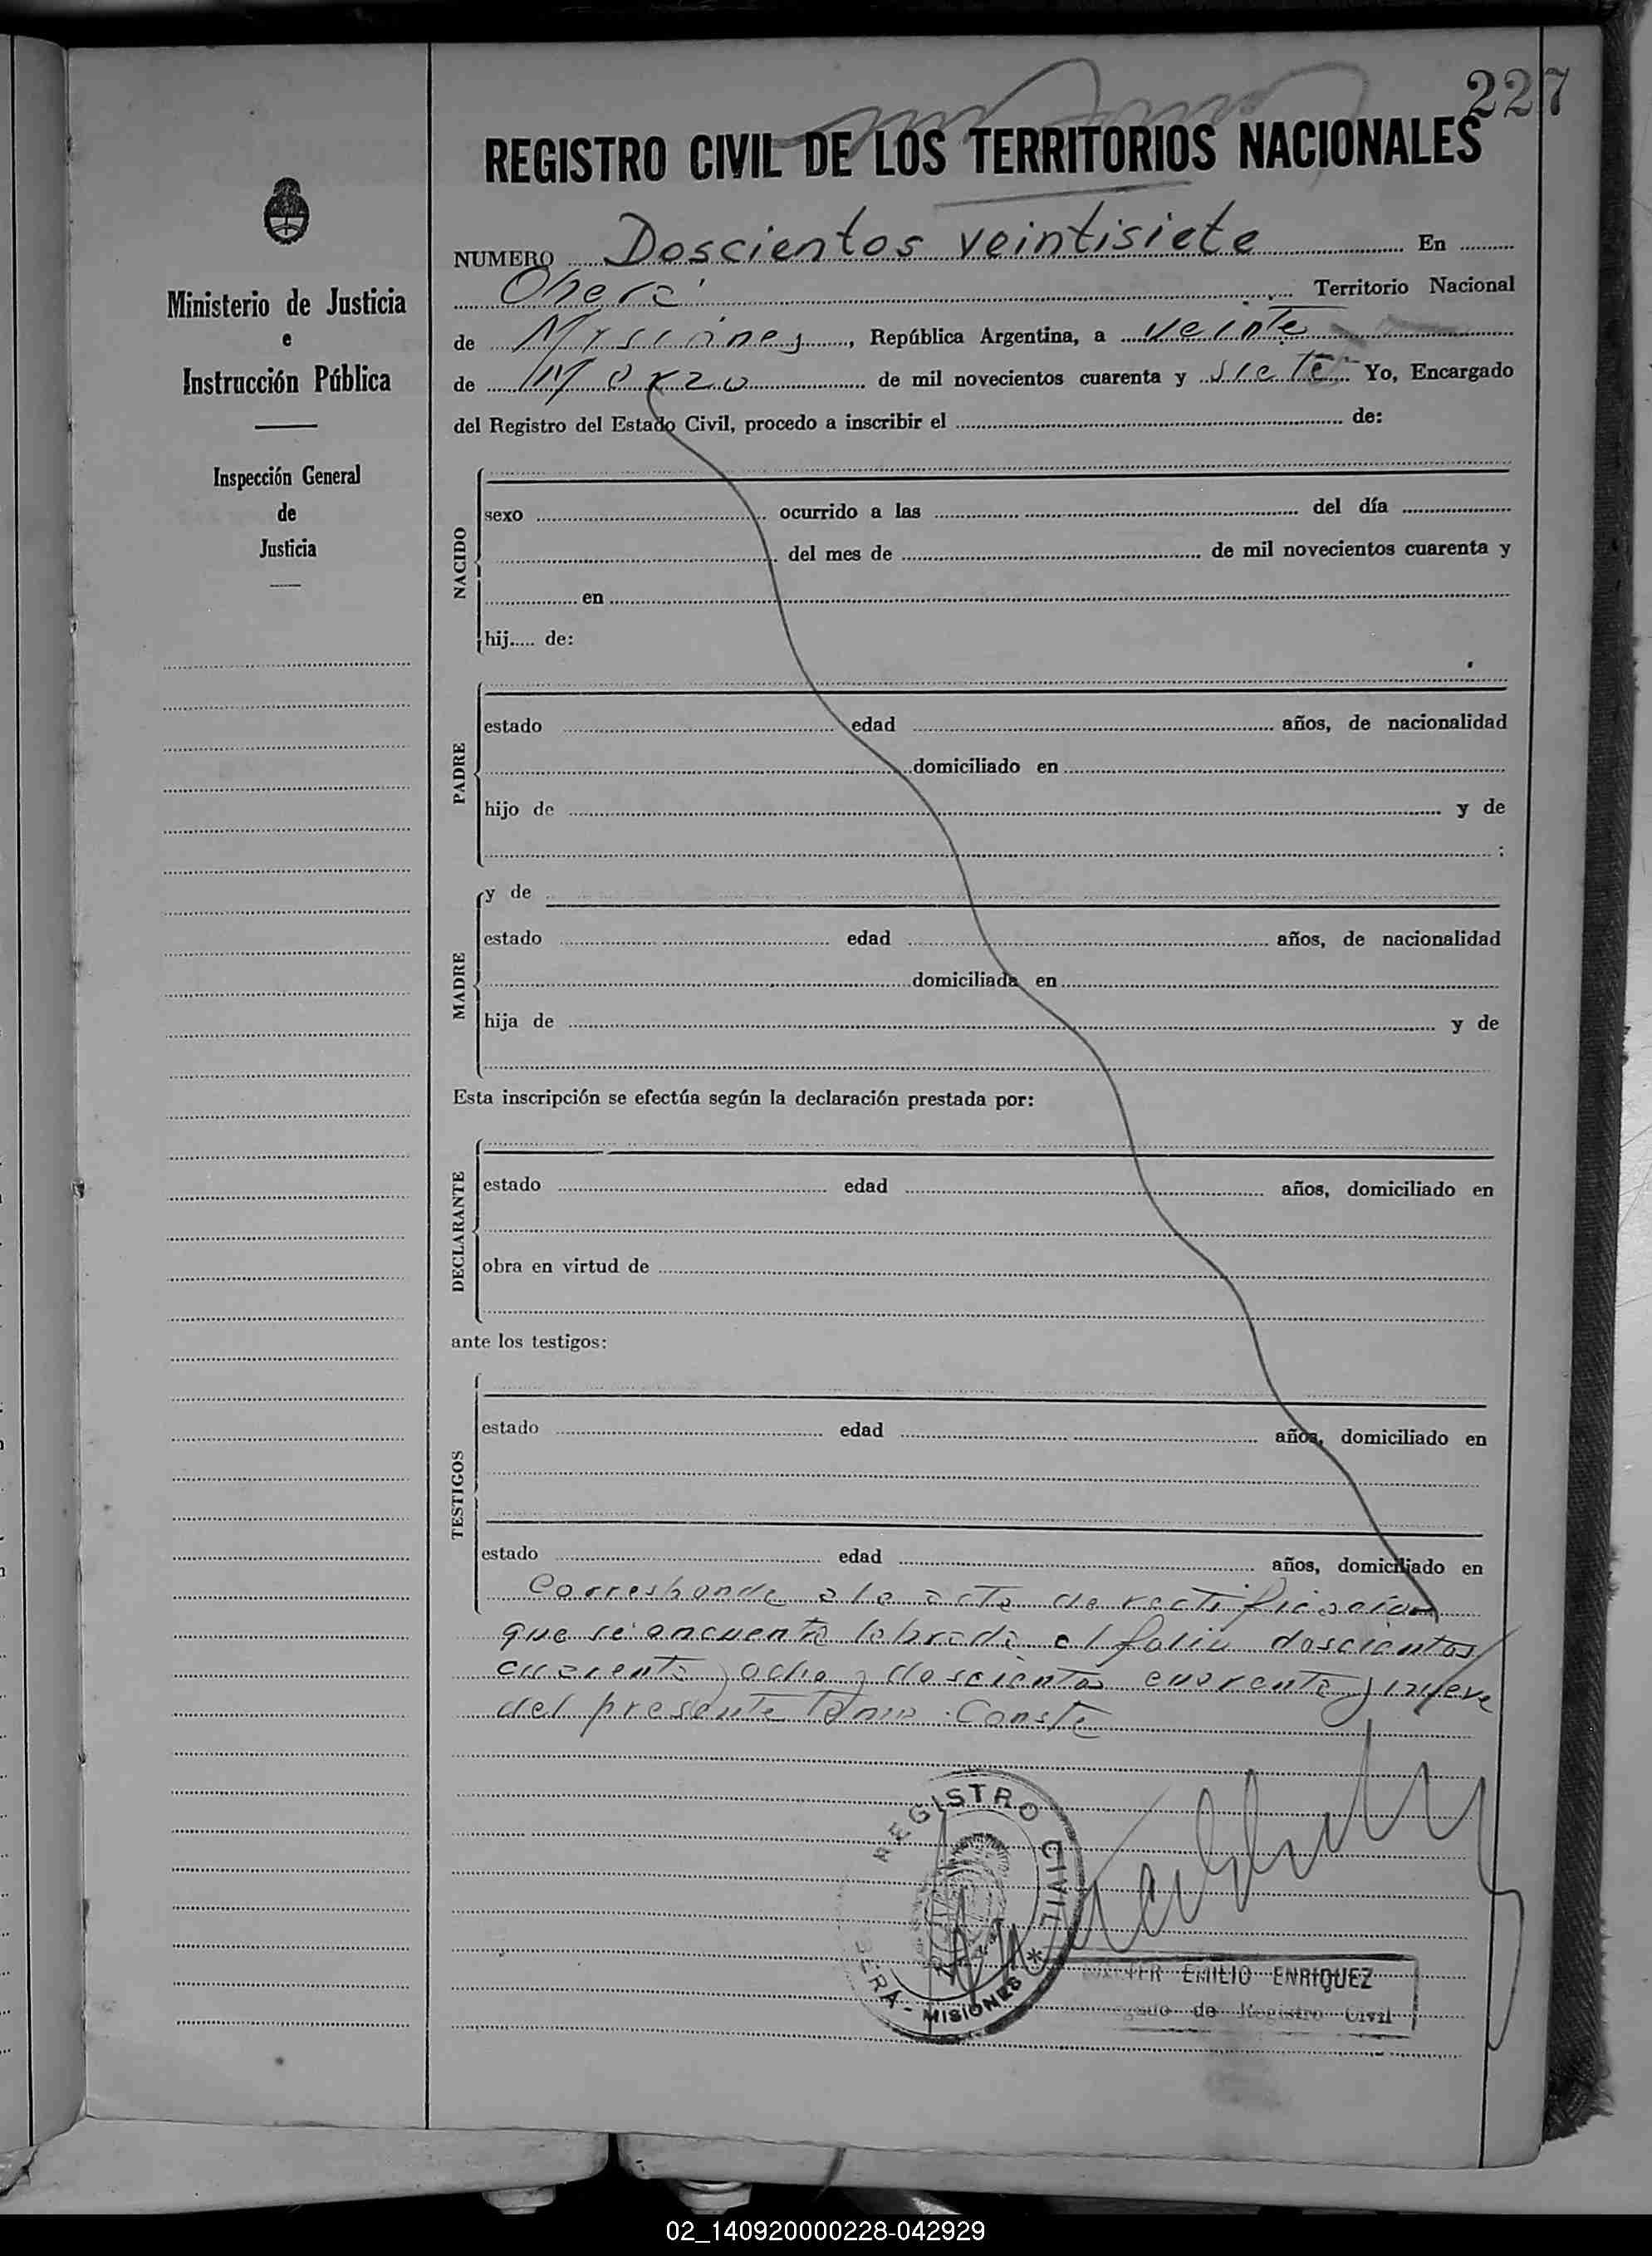 227
REGISTRO CIVIL DE LOS TERRITORIOS NACIONALES
NUMERO Doscientos veintisiete En
Oberá Territorio Nacional
de Misiones, República Argentina, a veinte
de Marzo de mil novecientos cuarenta y siete Yo, Encargado
del Registro del Estado Civil, procedo a inscribir el de:
Ministerio de Justicia
e
Instrucción Pública
Inspección General
de
Justicia
NACIDO
sexo ocurrido a las del día
del mes de de mil novecientos cuarenta y
en
hij..... de:
PADRE
estado edad años, de nacionalidad
domiciliado en
hijo de y de
;
MADRE
y de
estado edad años, de nacionalidad
domiciliada en
hija de y de
Esta inscripción se efectúa según la declaración prestada por:
DECLARANTE
estado edad años, domiciliado en
obra en virtud de
ante los testigos:
TESTIGOS
estado edad años, domiciliado en
estado edad años, domiciliado en
Corresponde a la acta de rectificación
que se encuentra labrada al folio doscientos
cuarenta y ocho y doscientos cuarenta y nueve
del presente tomo. Conste
REGISTRO CIVIL
OBERA - MISIONES *
EMILIO ENRIQUEZ
de Registro Civil
02_140920000228-042929